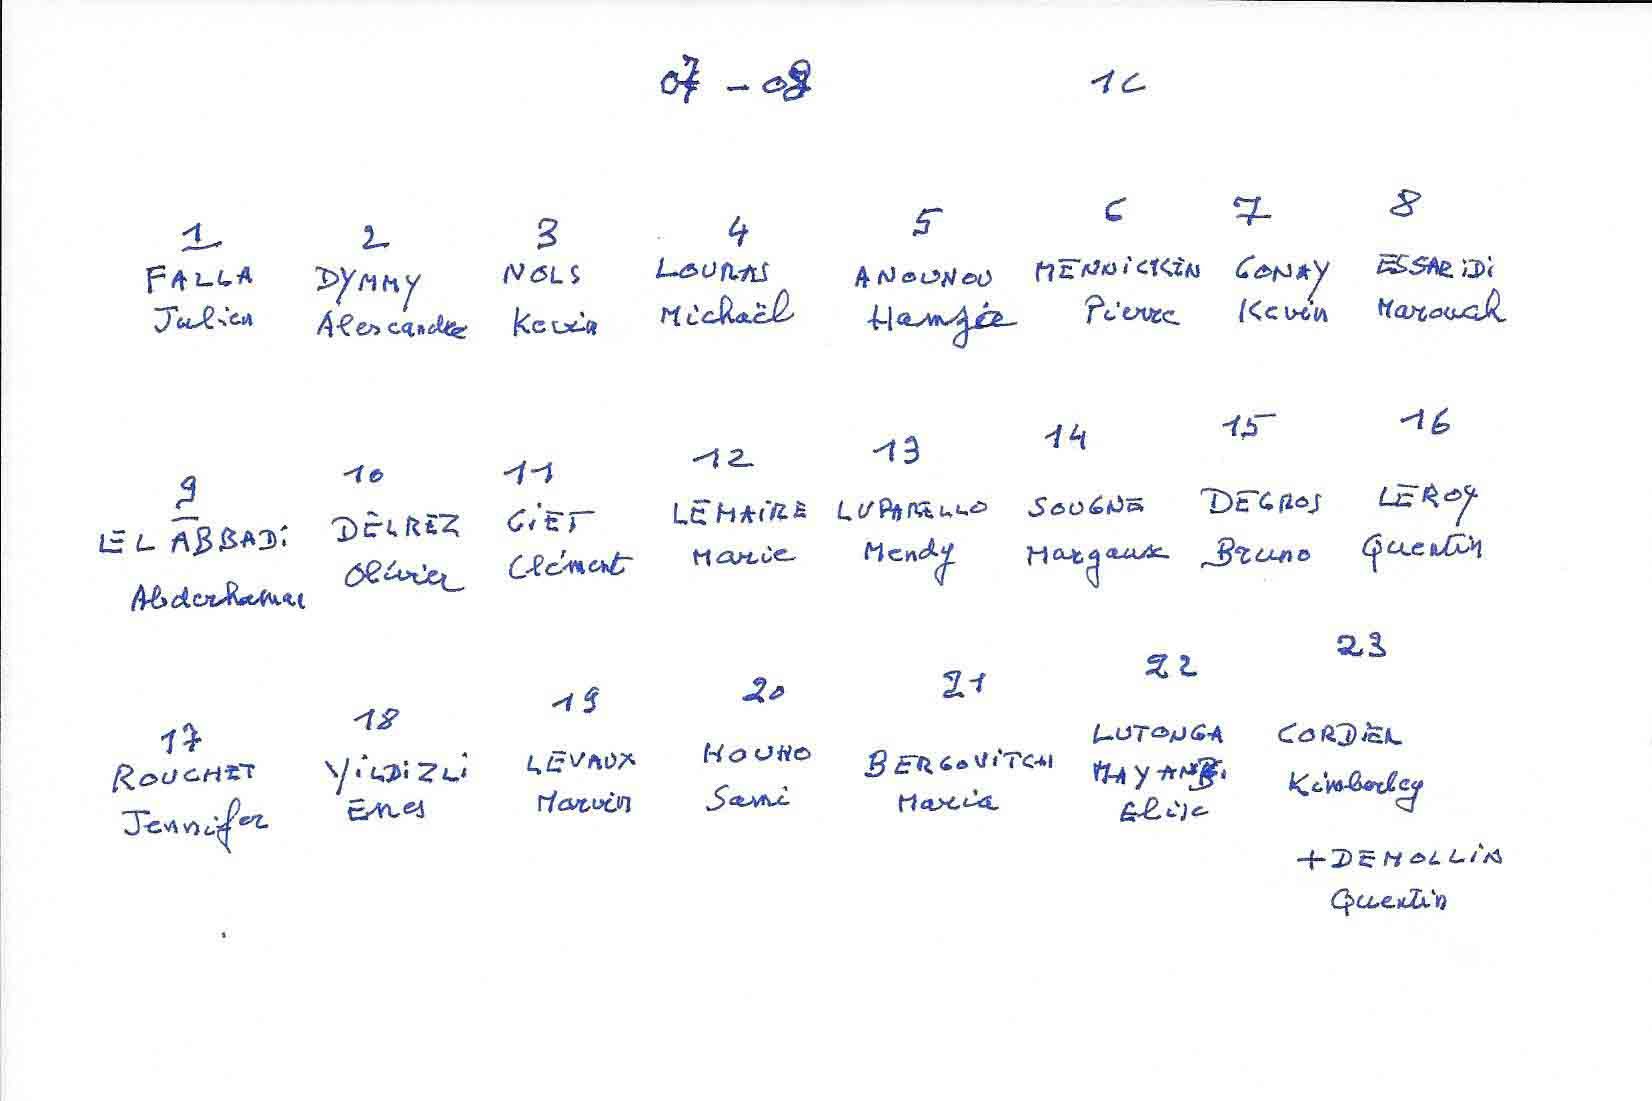 07 - 08 1C
1 2 3 4 5 6 7 8
FALLA DYMMY NOLS LOURAS ANOUNOU MENNICKEN GONAY ESSARIDI
Julien Alescandre Kevin Michaël Pierre Kevin Marouah
9 10 11 12 13 14 15 16
EL ABBADI DELREZ GIET LEMAIRE LUPARELLO SOUGNE DEGROS LEROY
Olivier Clément Marie Mendy Margaux Bruno Quentin
17 18 19 20 21 22 23
ROUCHET YILDIZLI LEVAUX HOUHO BERGOVITCH LUTONGA CORDIEL
Jennifer Enes Marvin Sami Maria MAYANBI Kimberley
Elise
+DEMOLLIN
Quentin